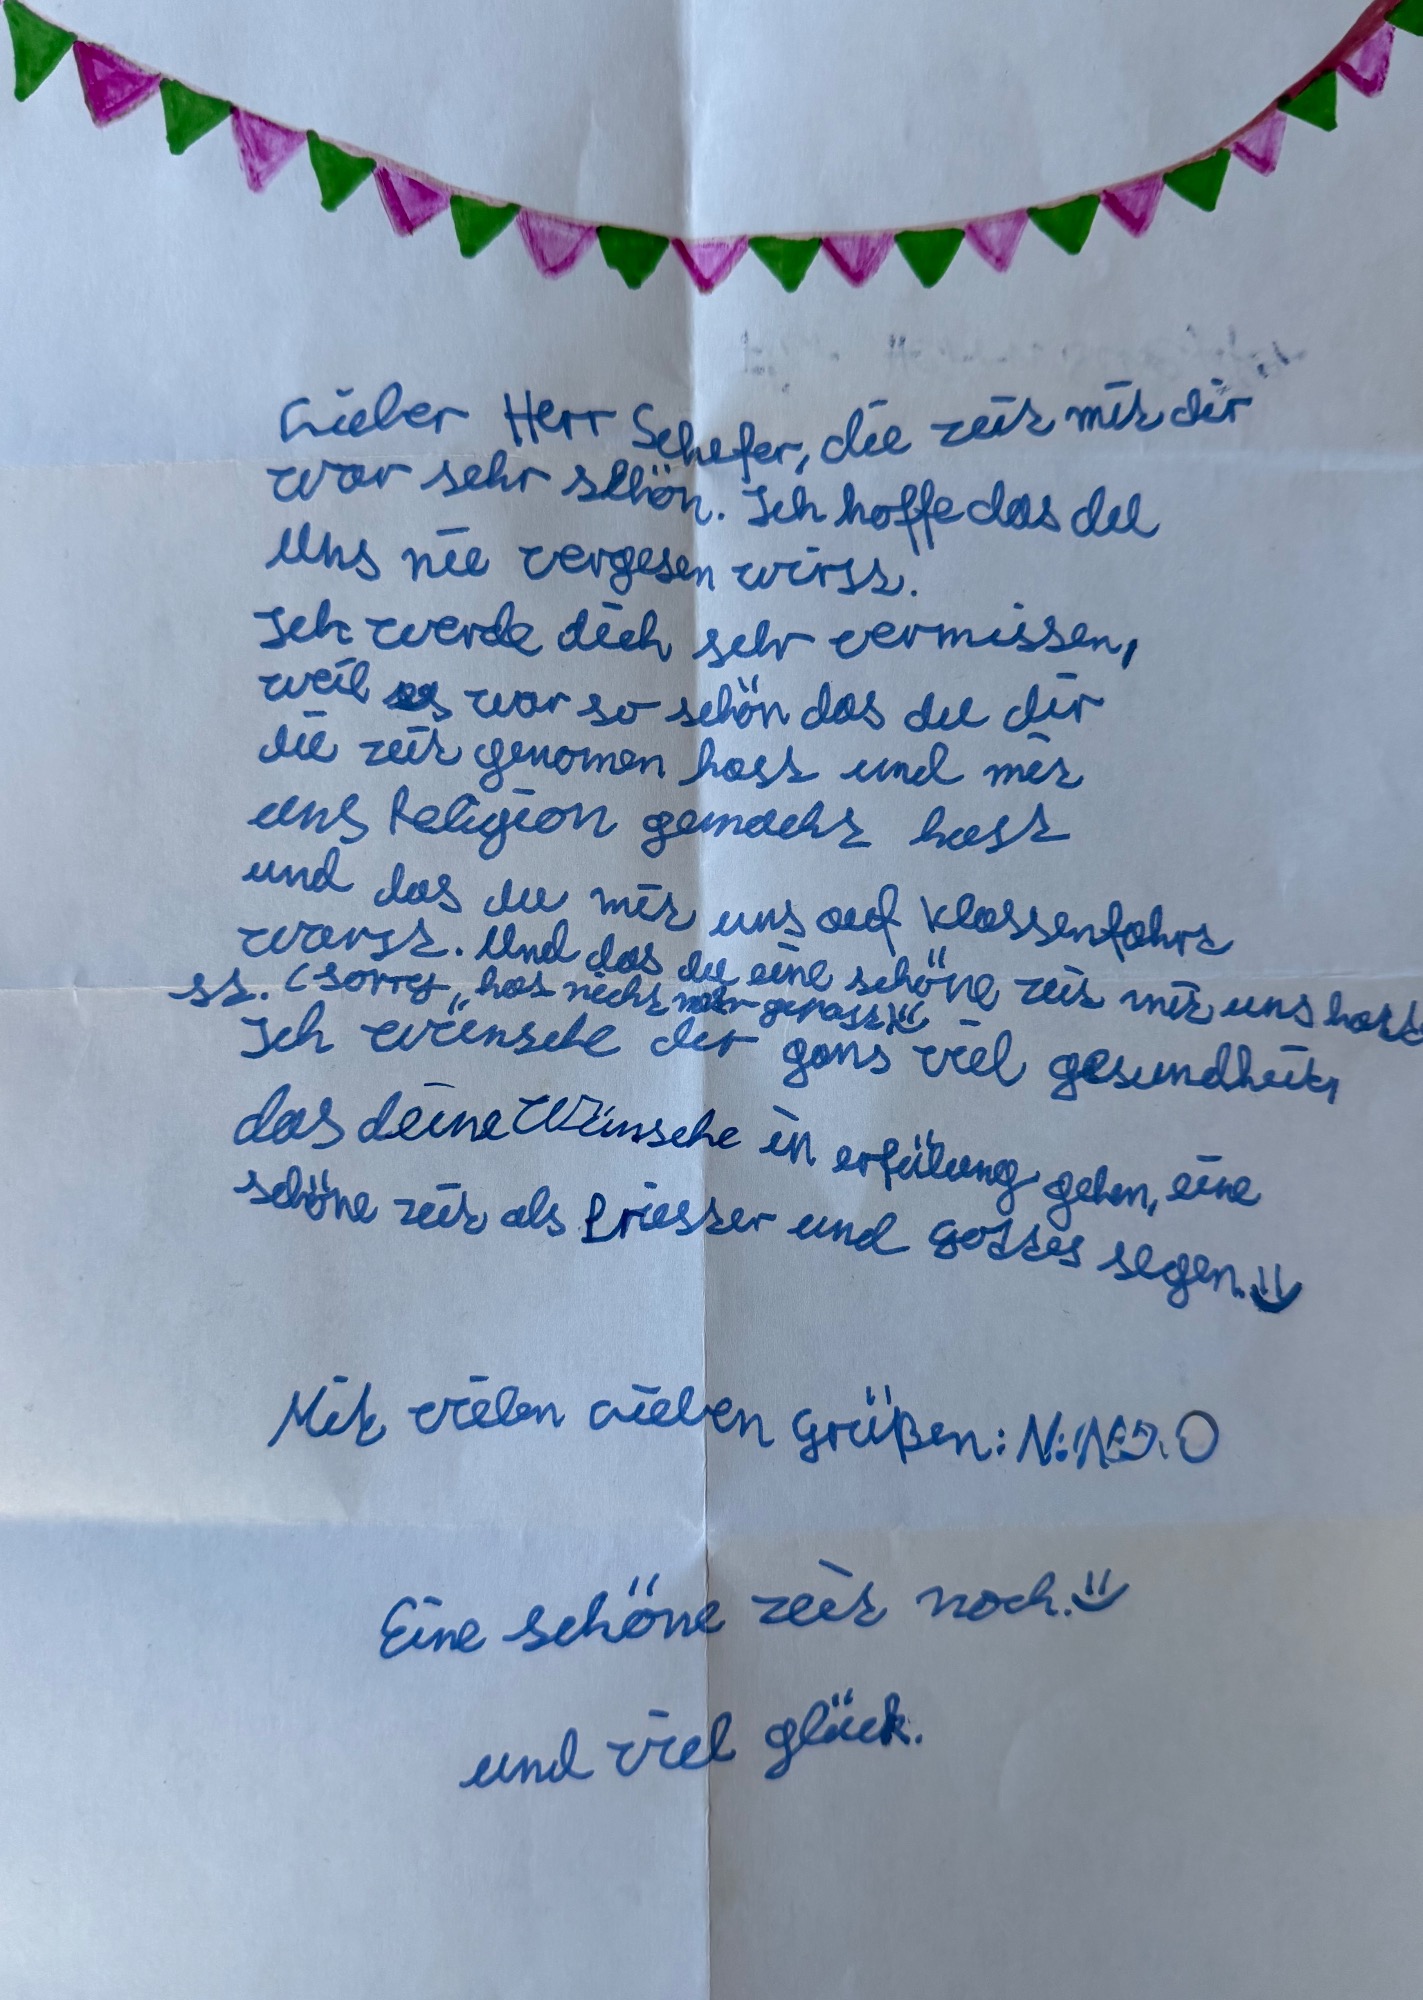 Lieber Herr Schefer, die zeit mit dir
war sehr schön. Ich hoffe das du
uns nie vergesen wirst.
Ich werde dich sehr vermissen,
weil es war so schön das du dir
die zeit genomen hast und mit
uns Religion gemacht hast
und das du mit uns auf Klassenfahrt
warst. Und das du eine schöne zeit mit uns hast
st. (sorry, hat nicht mehr gepasst) ü
Ich wünsche dir gans viel gesundheit,
das deine Wünsche in erfülung gehen, eine
schöne zeit als Priester und gottes segen. ü
Mit vielen lieben Grüßen:
Eine schöne zeit noch. ü
und viel glück.